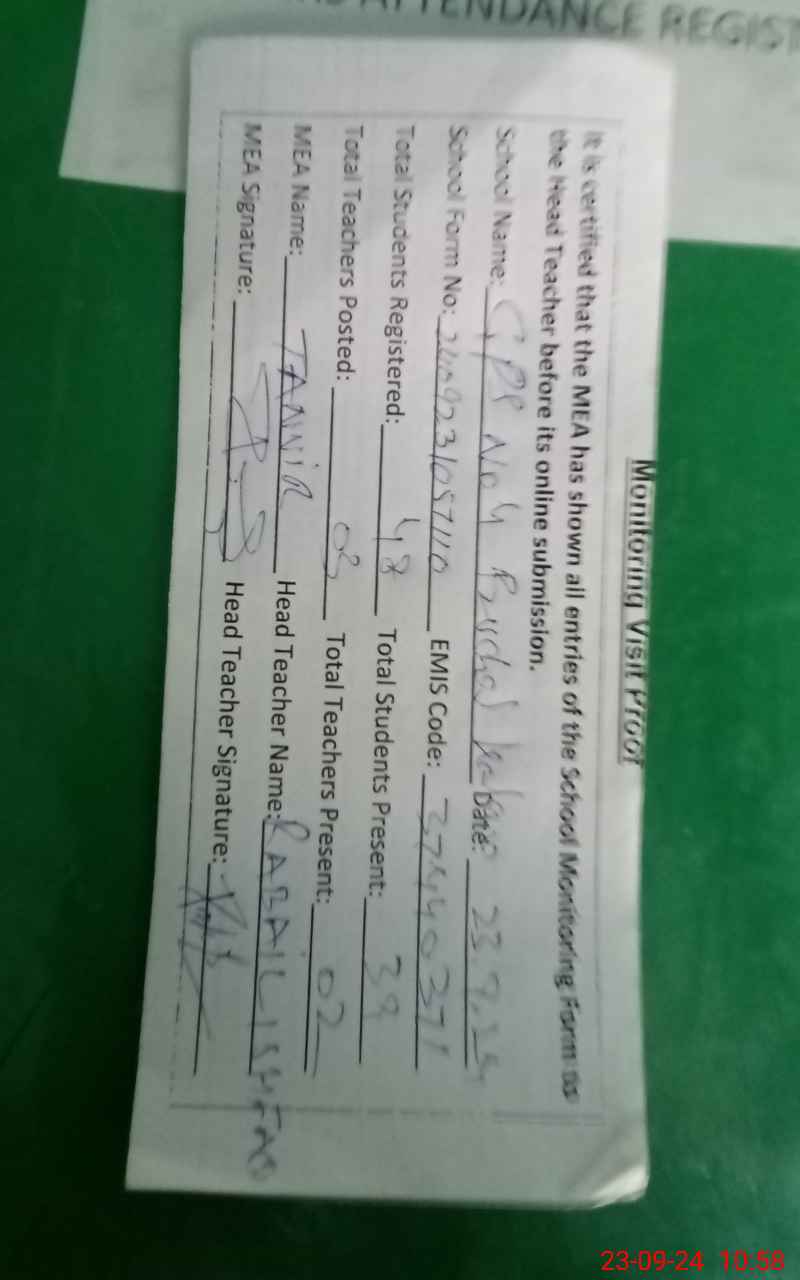 ATTENDANCE REGIST
Monitoring Visit Proof
It is certified that the MEA has shown all entries of the School Monitoring Form as
the Head Teacher before its online submission.
School Name: GPS No 4 Date: 23.9.24
School Form No: EMIS Code: 37440371
Total Students Registered: 48 Total Students Present: 39
Total Teachers Posted: 03 Total Teachers Present: 02
MEA Name: Head Teacher Name:
MEA Signature: Head Teacher Signature:
23-09-24 10:58